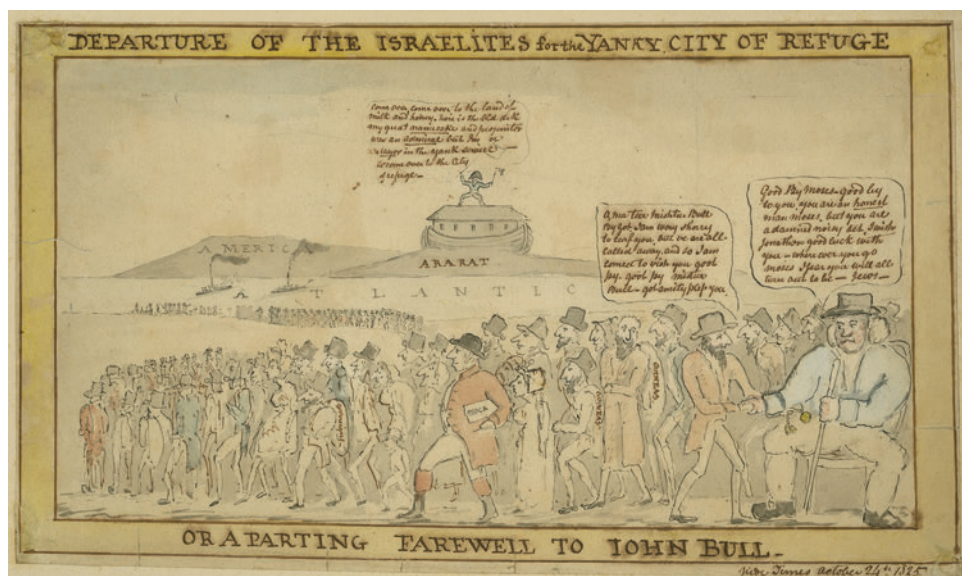 DEPARTURE OF THE ISRAELITES for the YANKY CITY OF REFUGE
come over, come over to the land of
milk and honey, here is the old
my great namesake and progenitor
was an admiral but I'm
in the yank
come over to the City
of refuge
AMERICA
ARARAT
ATLANTIC
to leaf you, but ve are all
called away, and so I am
comed to vish you goot
py, goot py mishter
Bull – got amity plesh you
Good by Moses – good by
to you, you are an honest
man moses, but you are
a damned noisy set, I wish
Jonathon good luck with
you – where ever you go
moses I fear you will all
turn out to be – Jews –
OR A PARTING FAREWELL TO IOHN BULL –
Vide Times october 24th 1825